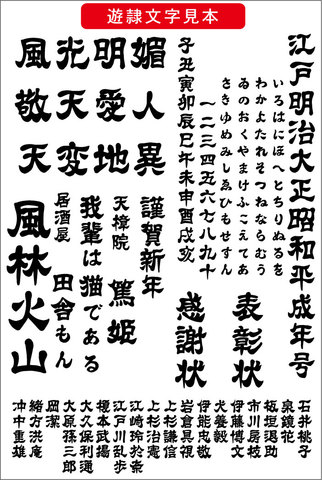 遊隷文字見本
江戸明治大正昭和平成年号
いろはにほへとちりぬるを
わかよたれそつねならむう
ゐのおくやまけふこえてあ
さきゆめみしゑひもせすん
一二三四五六七八九十
子丑寅卯辰巳午未申酉戌亥
媚人異
明愛地
光天変
風敬天
表彰状
感謝状
謹賀新年
篤姫
天樟院
我輩は猫である
田舎もん
居酒屋
風林火山
石井桃子
泉鏡花
板垣退助
市川房枝
伊藤博文
犬養毅
伊能忠敬
岩倉具視
上杉謙信
上杉治憲
江崎玲於奈
江戸川乱歩
榎本武揚
大久保利通
大原孫三郎
岡潔
緒方洪庵
沖中重雄